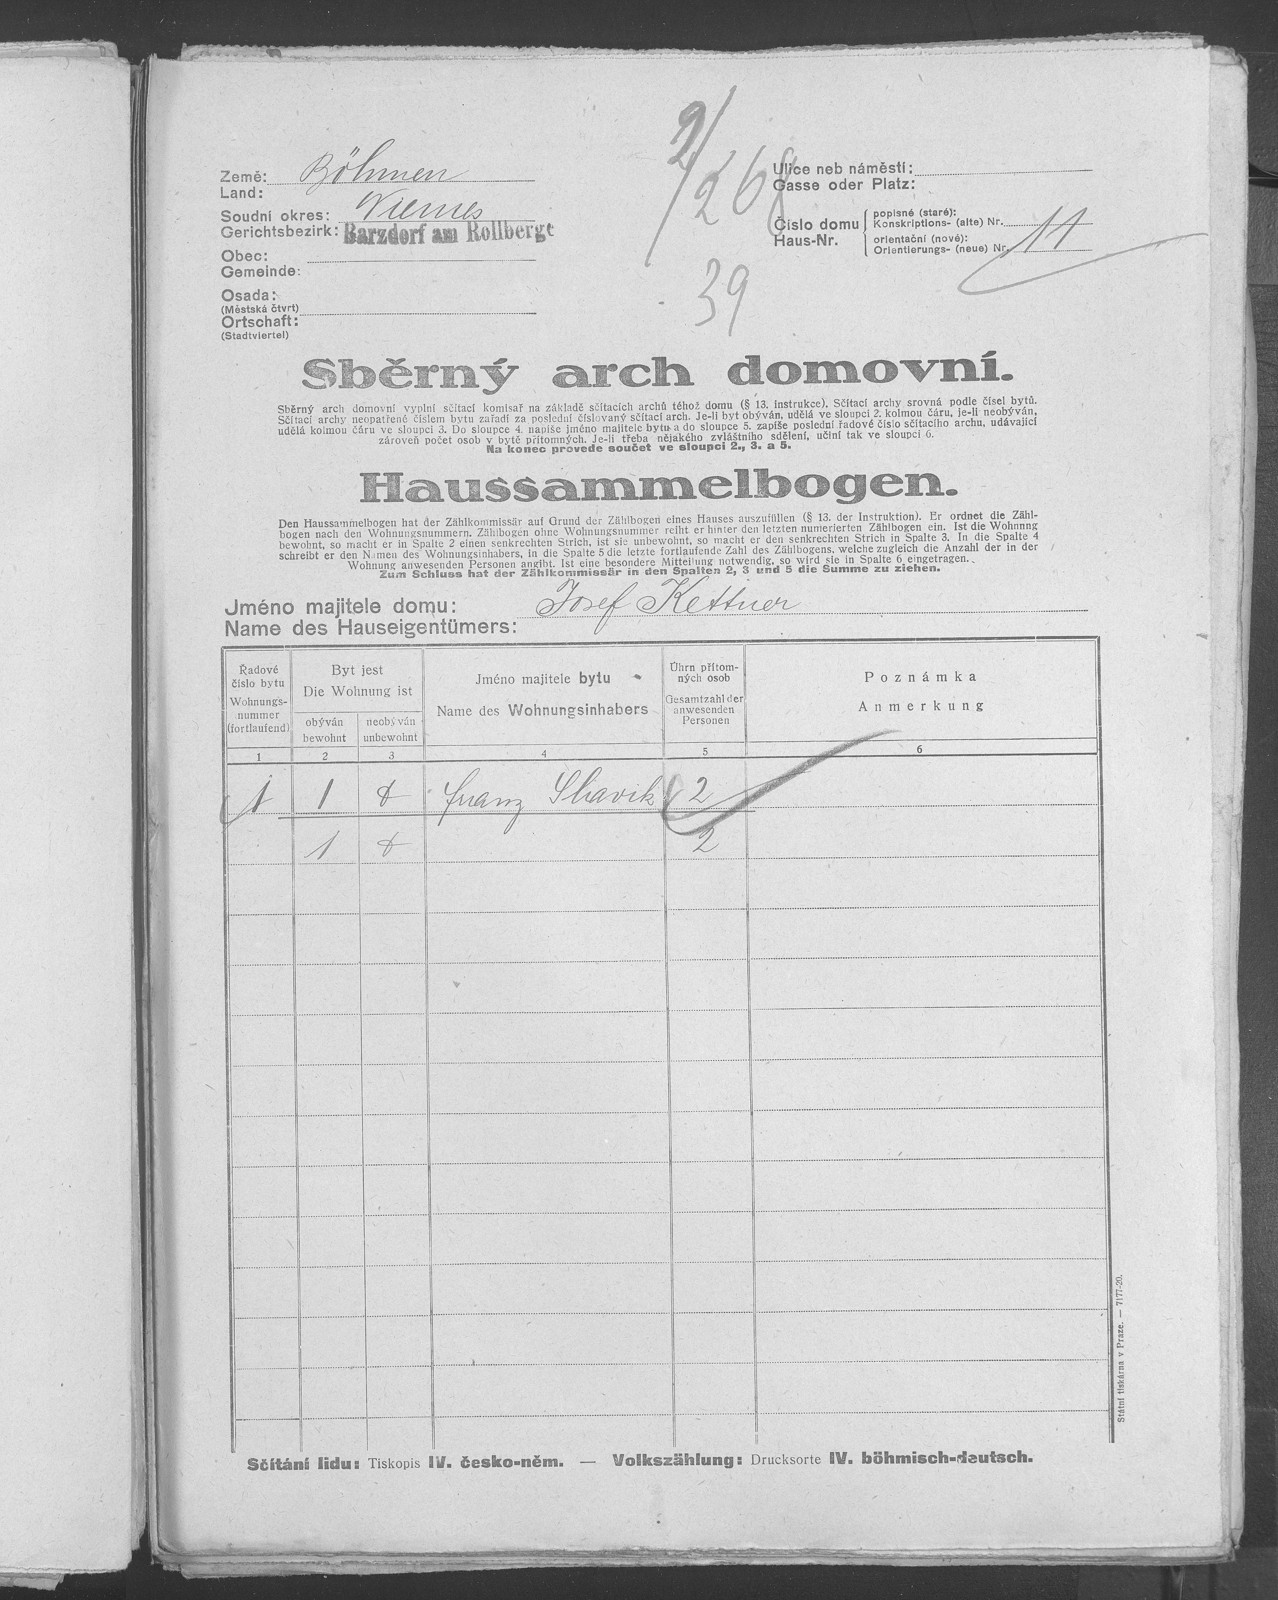 2/268
39
Země: Böhmen
Land:
Soudní okres: Niemes
Gerichtsbezirk: Barzdorf am Rollberge
Obec:
Gemeinde:
Osada:
(Městská čtvrt)
Ortschaft:
(Stadtviertel)
Ulice neb náměstí:
Gasse oder Platz:
Číslo domu
Haus-Nr.
popisné (staré):
Konskriptions- (alte) Nr.
orientační (nové):
Orientierungs- (neue) Nr. 11
Sběrný arch domovní.
Sběrný arch domovní vyplní sčítací komisař na základě sčítacích archů téhož domu (§ 13. instrukce). Sčítací archy srovná podle čísel bytů.
Sčítací archy neopatřené číslem bytu zařadí za poslední číslovaný sčítací arch. Je-li byt obýván, udělá ve sloupci 2. kolmou čáru, je-li neobýván,
udělá kolmou čáru ve sloupci 3. Do sloupce 4. napíše jméno majitele bytu a do sloupce 5. zapíše poslední řadové číslo sčítacího archu, udávající
zároveň počet osob v bytě přítomných. Je-li třeba nějakého zvláštního sdělení, učiní tak ve sloupci 6.
Na konec provede součet ve sloupci 2., 3. a 5.
Haussammelbogen.
Den Haussammelbogen hat der Zählkommissär auf Grund der Zählbogen eines Hauses auszufüllen (§ 13. der Instruktion). Er ordnet die Zähl-
bogen nach den Wohnungsnummern. Zählbogen ohne Wohnungsnummer reiht er hinter den letzten numerierten Zählbogen ein. Ist die Wohnnng
bewohnt, so macht er in Spalte 2 einen senkrechten Strich, ist sie unbewohnt, so macht er den senkrechten Strich in Spalte 3. In die Spalte 4
schreibt er den Namen des Wohnungsinhabers, in die Spalte 5 die letzte fortlaufende Zahl des Zählbogens, welche zugleich die Anzahl der in der
Wohnung anwesenden Personen angibt. Ist eine besondere Mitteilung notwendig, so wird sie in Spalte 6 eingetragen.
Zum Schluss hat der Zählkommissär in den Spalten 2, 3 und 5 die Summe zu ziehen.
Jméno majitele domu: Josef Kettner
Name des Hauseigentümers:
Řadové
číslo bytu
Wohnungs-
nummer
(fortlaufend)
Byt jest
Die Wohnung ist
obýván
bewohnt
neobýván
unbewohnt
Jméno majitele bytu
Name des Wohnungsinhabers
Úhrn přítom-
ných osob
Gesamtzahl der
anwesenden
Personen
Poznámka
Anmerkung
1 2 3 4 5 6
1 1 Franz Slavik 2
1 2
Státní tiskárna v Praze. — 7177-20.
Sčítání lidu: Tiskopis IV. česko-něm. — Volkszählung: Drucksorte IV. böhmisch-deutsch.